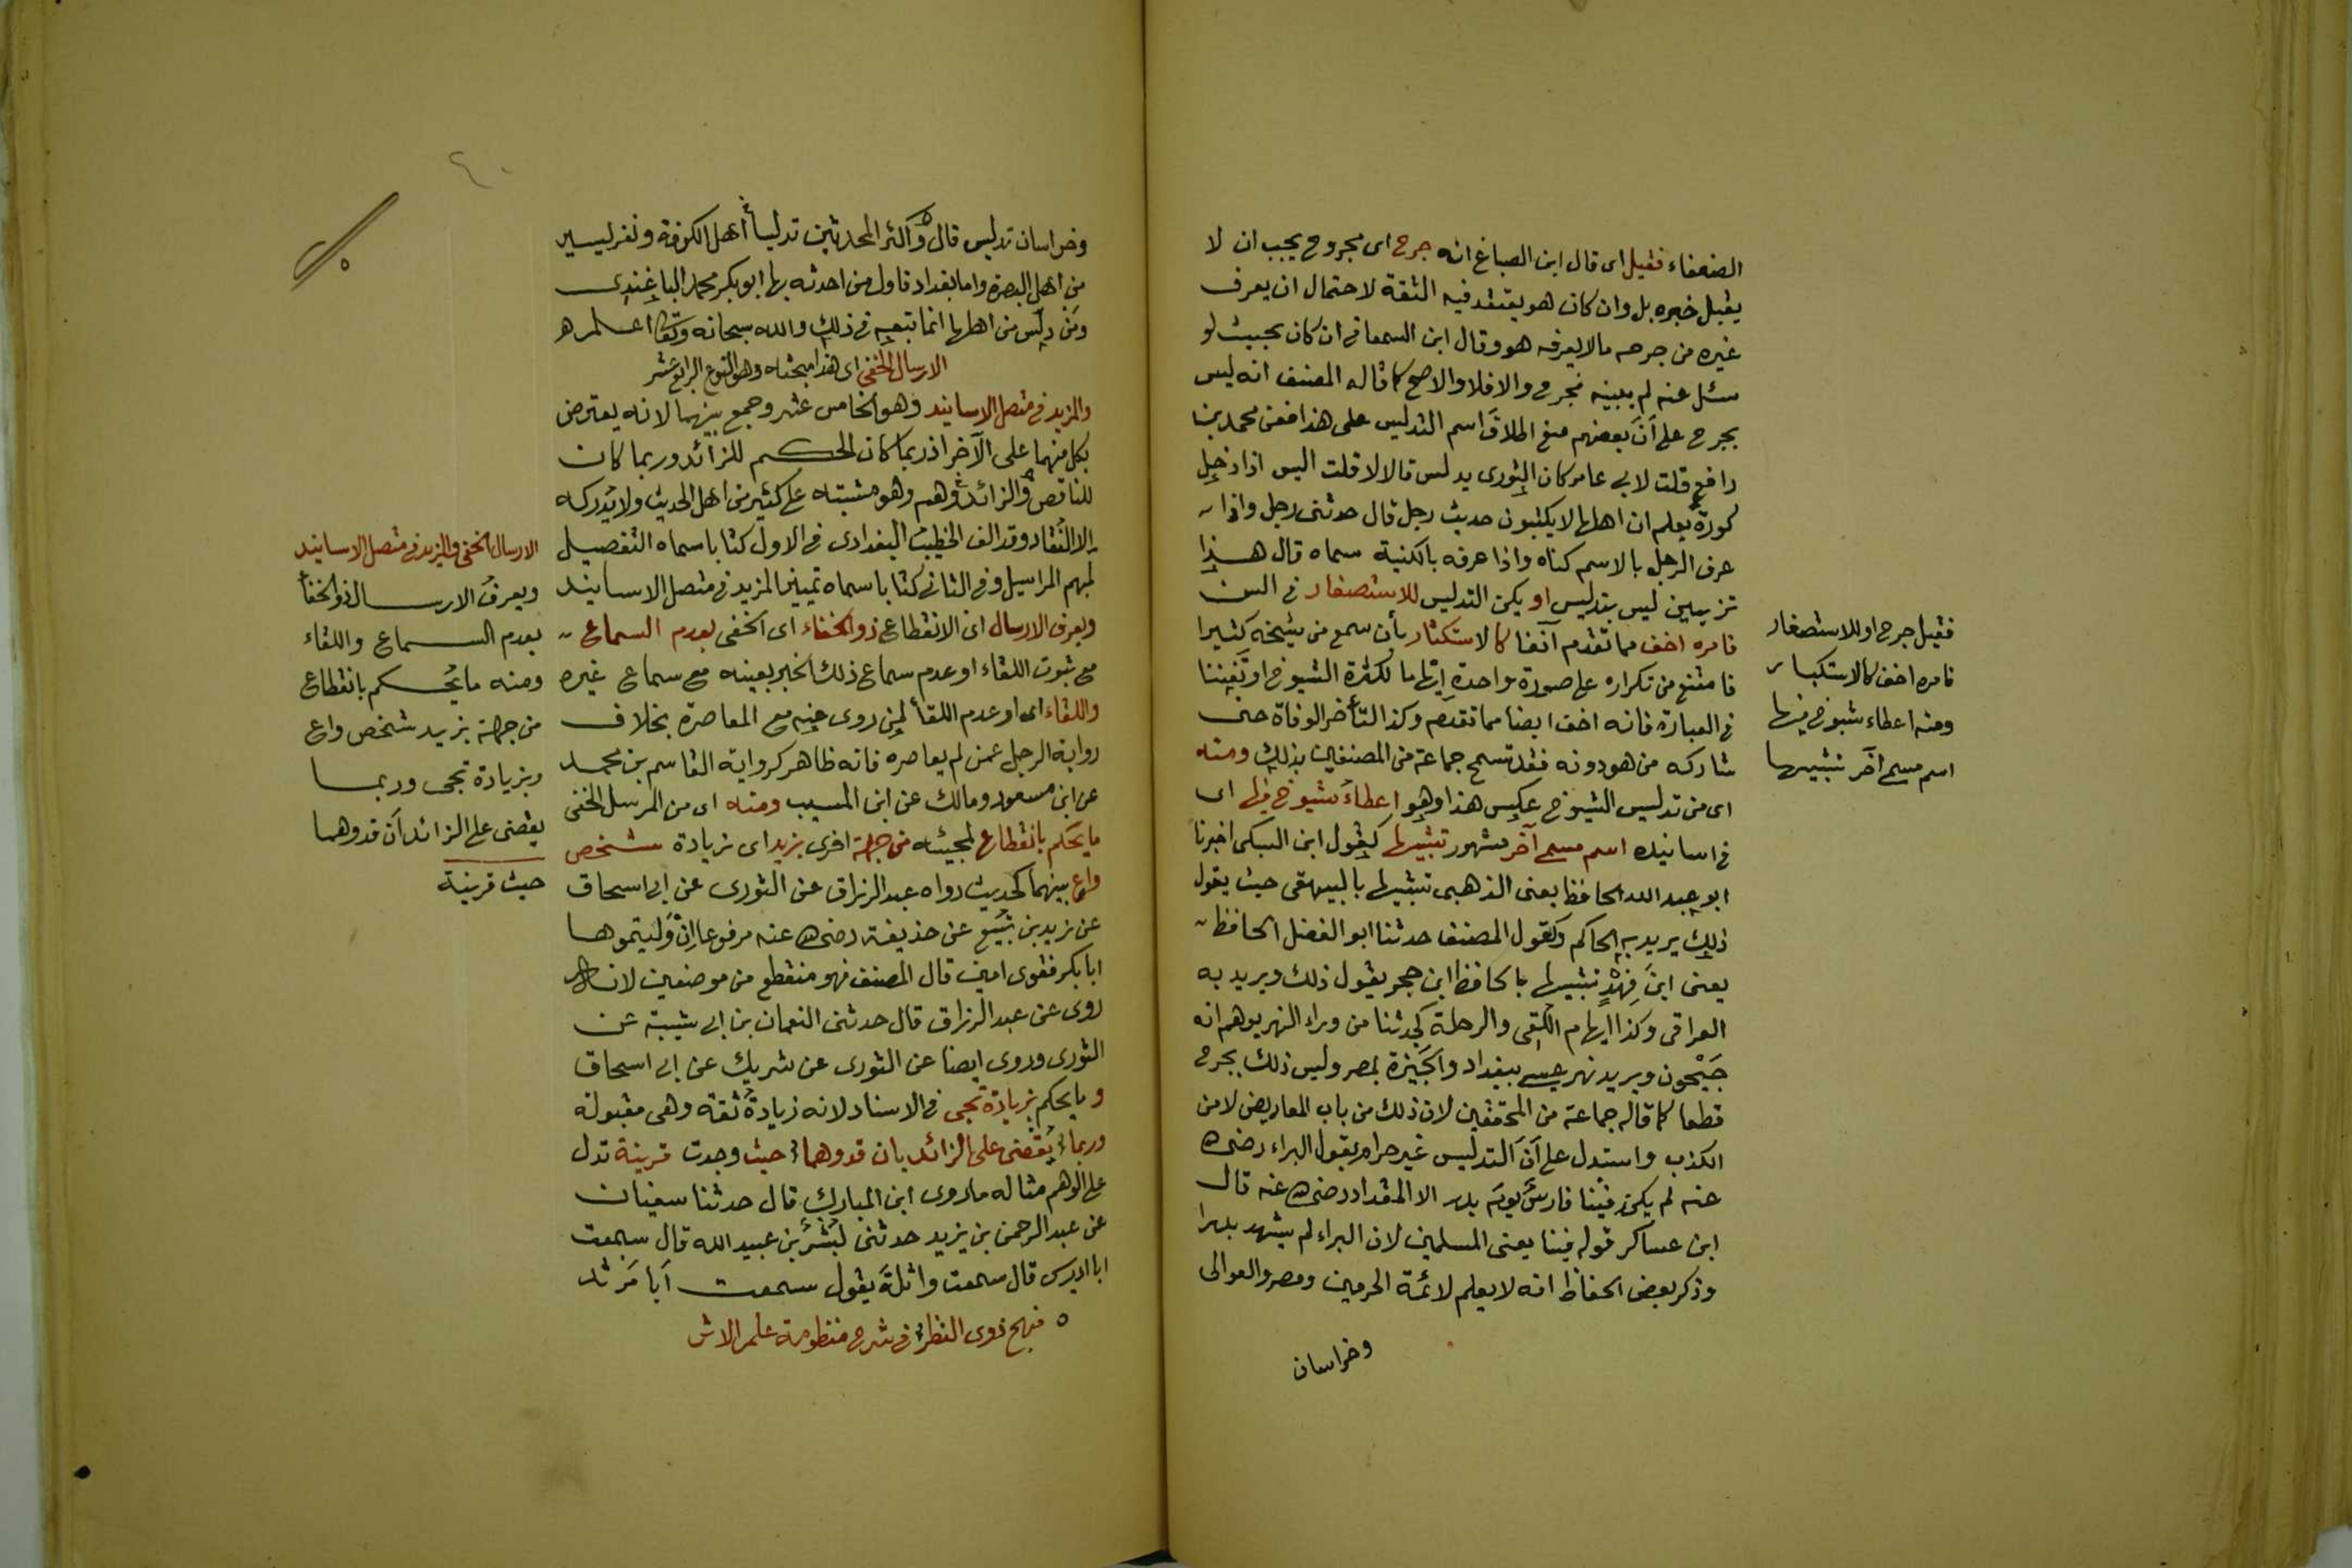 الضعفاء فقيل اى قال ابن الصباغ انه جرح اى مجروح يجب ان لا
يقبل خبره بل وان كان هو يعتقد فيه الثقة لاحتمال ان يعرف
غيره من جرحه ما لا يعرفه هو وقال ابن السمعانى ان كان بحيث لو
سئل عنه لم يبينه فجرح والا فلا والاصح كما قاله المصنف انه ليس
بجرح على أن بعضهم منع اطلاق اسم التدليس على هذا فعن محمد بن
رافع قلت لابى عامر كان الثورى يدلس قال لا قلت اليس اذا دخل
كورة يعلم ان اهلها لا يكتبون حديث رجل قال حدثنى رجل واذا
عرف الرجل بالاسم كناه واذا عرفه بالكنية سماه قال هذا
تزيين ليس بتدليس او يكن التدليس للاستصغار فى السن
فامره اخف مما تقدم آنفا كالاستكثار بأن سمع من شيخه كثيرا
فامتنع من تكراره على صورة واحدة ايهاما لكثرة الشيوخ او تفننا
فى العبارة فانه اخف ايضا مما تقدم وكذا التأخر الوفاة حتى
شاركه من هو دونه فقد تسمح جماعة من المصنفين بذلك ومنه
اى من تدليس الشيوخ عكس هذا وهو اعطاء شيوخ فيها اى
فى اسانيده اسم مسمى آخر مشهور تشبيها كقول ابن السبكى اخبرنا
ابو عبد الله الحافظ يعنى الذهبى تشبيها بالبيهقى حيث يقول
ذلك يريد به الحاكم وكقول المصنف حدثنا ابو الفضل الحافظ
يعنى ابن فهد تشبيها بالحافظ ابن حجر يقول ذلك ويريد به
العراقى وكذا ايهام اللقى والرحلة كحدثنا من وراء النهر يوهم انه
جيحون ويريد نهر عيسى ببغداد والجيزة بمصر وليس ذلك بجرح
قطعا كما قاله جماعة من المحققين لان ذلك من باب المعاريض لا من
الكذب واستدل على أن التدليس غير حرام بقول البراء رضى الله
عنه لم يكن فينا فارس يوم بدر الا المقداد رضى الله عنه قال
ابن عساكر قوله فينا يعنى المسلمين لان البراء لم يشهد بدرا
وذكر بعض الحفاظ انه لا يعلم لائمة الحرمين ومصر والعوالى
وخراسان
فقيل جرح او للاستصغار
فامره اخف كالاستكبار
ومنه اعطاء شيوخ فيها
اسم مسمى آخر تشبيها
وخراسان تدليس قال واكثر المحدثين تدليسا أهل الكوفة ونفر يسير
من اهل البصرة واما بغداد فاول من احدثه بها ابو بكر محمد الباغندى
ومن دلس من اهلها انما تبعه فى ذلك والله سبحانه وتعالى اعلم
الارسال الخفى اى هذا مبحثه وهو النوع الرابع عشر
والمزيد فى متصل الاسانيد وهو الخامس عشر وجمع بينهما لانه يعترض
بكل منهما على الآخر اذ ربما كان الحكم للزائد وربما كان
للناقص والزائد وهم وهو مشتبه على كثير من اهل الحديث ولا يدركه
الا النقاد وقد الف الخطيب البغدادى فى الاول كتابا سماه التفصيل
لمبهم المراسيل وفى الثانى كتابا سماه تمييز المزيد فى متصل الاسانيد
ويعرف الارسال اى الانقطاع ذو الخفاء اى الخفى بعدم السماع
مع ثبوت اللقاء او عدم سماع ذلك الخبر بعينه مع سماع غيره
واللقاء اى او عدم اللقأ لمن روى عنه مع المعاصرة بخلاف
رواية الرجل عمن لم يعاصره فانه ظاهر كرواية القاسم بن محمد
عن ابن مسعود ومالك عن ابن المسيب ومنه اى من المرسل الخفى
ما يحكم بانقطاع لمجيئه من جهة اخرى بزيد اى زيادة شخص
واع بينهما كحديث رواه عبد الرزاق عن الثورى عن ابى اسحاق
عن زيد بن يثيع عن حذيفة رضى الله عنه مرفوعا ان وليتموها
ابا بكر فقوى امين قال المصنف فهو منقطع من موضعين لانه
روى عن عبد الرزاق قال حدثنى النعمان بن ابى شيبة عن
الثورى وروى ايضا عن الثورى عن شريك عن ابى اسحاق
وما يحكم بزيادة تجى فى الاسناد لانه زيادة ثقة وهى مقبولة
وربما يقضى على الزائد بان قد وهما حيث وجدت قرينة تدل
على الوهم مثاله ما روى ابن المبارك قال حدثنا سفيان
عن عبد الرحمن بن يزيد حدثنى بشر بن عبيد الله قال سمعت
ابا ادريس قال سمعت واثلة يقول سمعت ابا مرثد
٥ منهج ذوى النظر فى شرح منظومة علم الاثر
الارسال الخفى والمزيد فى متصل الاسانيد
ويعرف الارسال ذو الخفأ
بعدم السماع واللقاء
ومنه ما يحكم بانقطاع
من جهة بزيد شخص واع
وبزيادة تجى وربما
يقضى على الزائد أن قد وهما
حيث قرينة